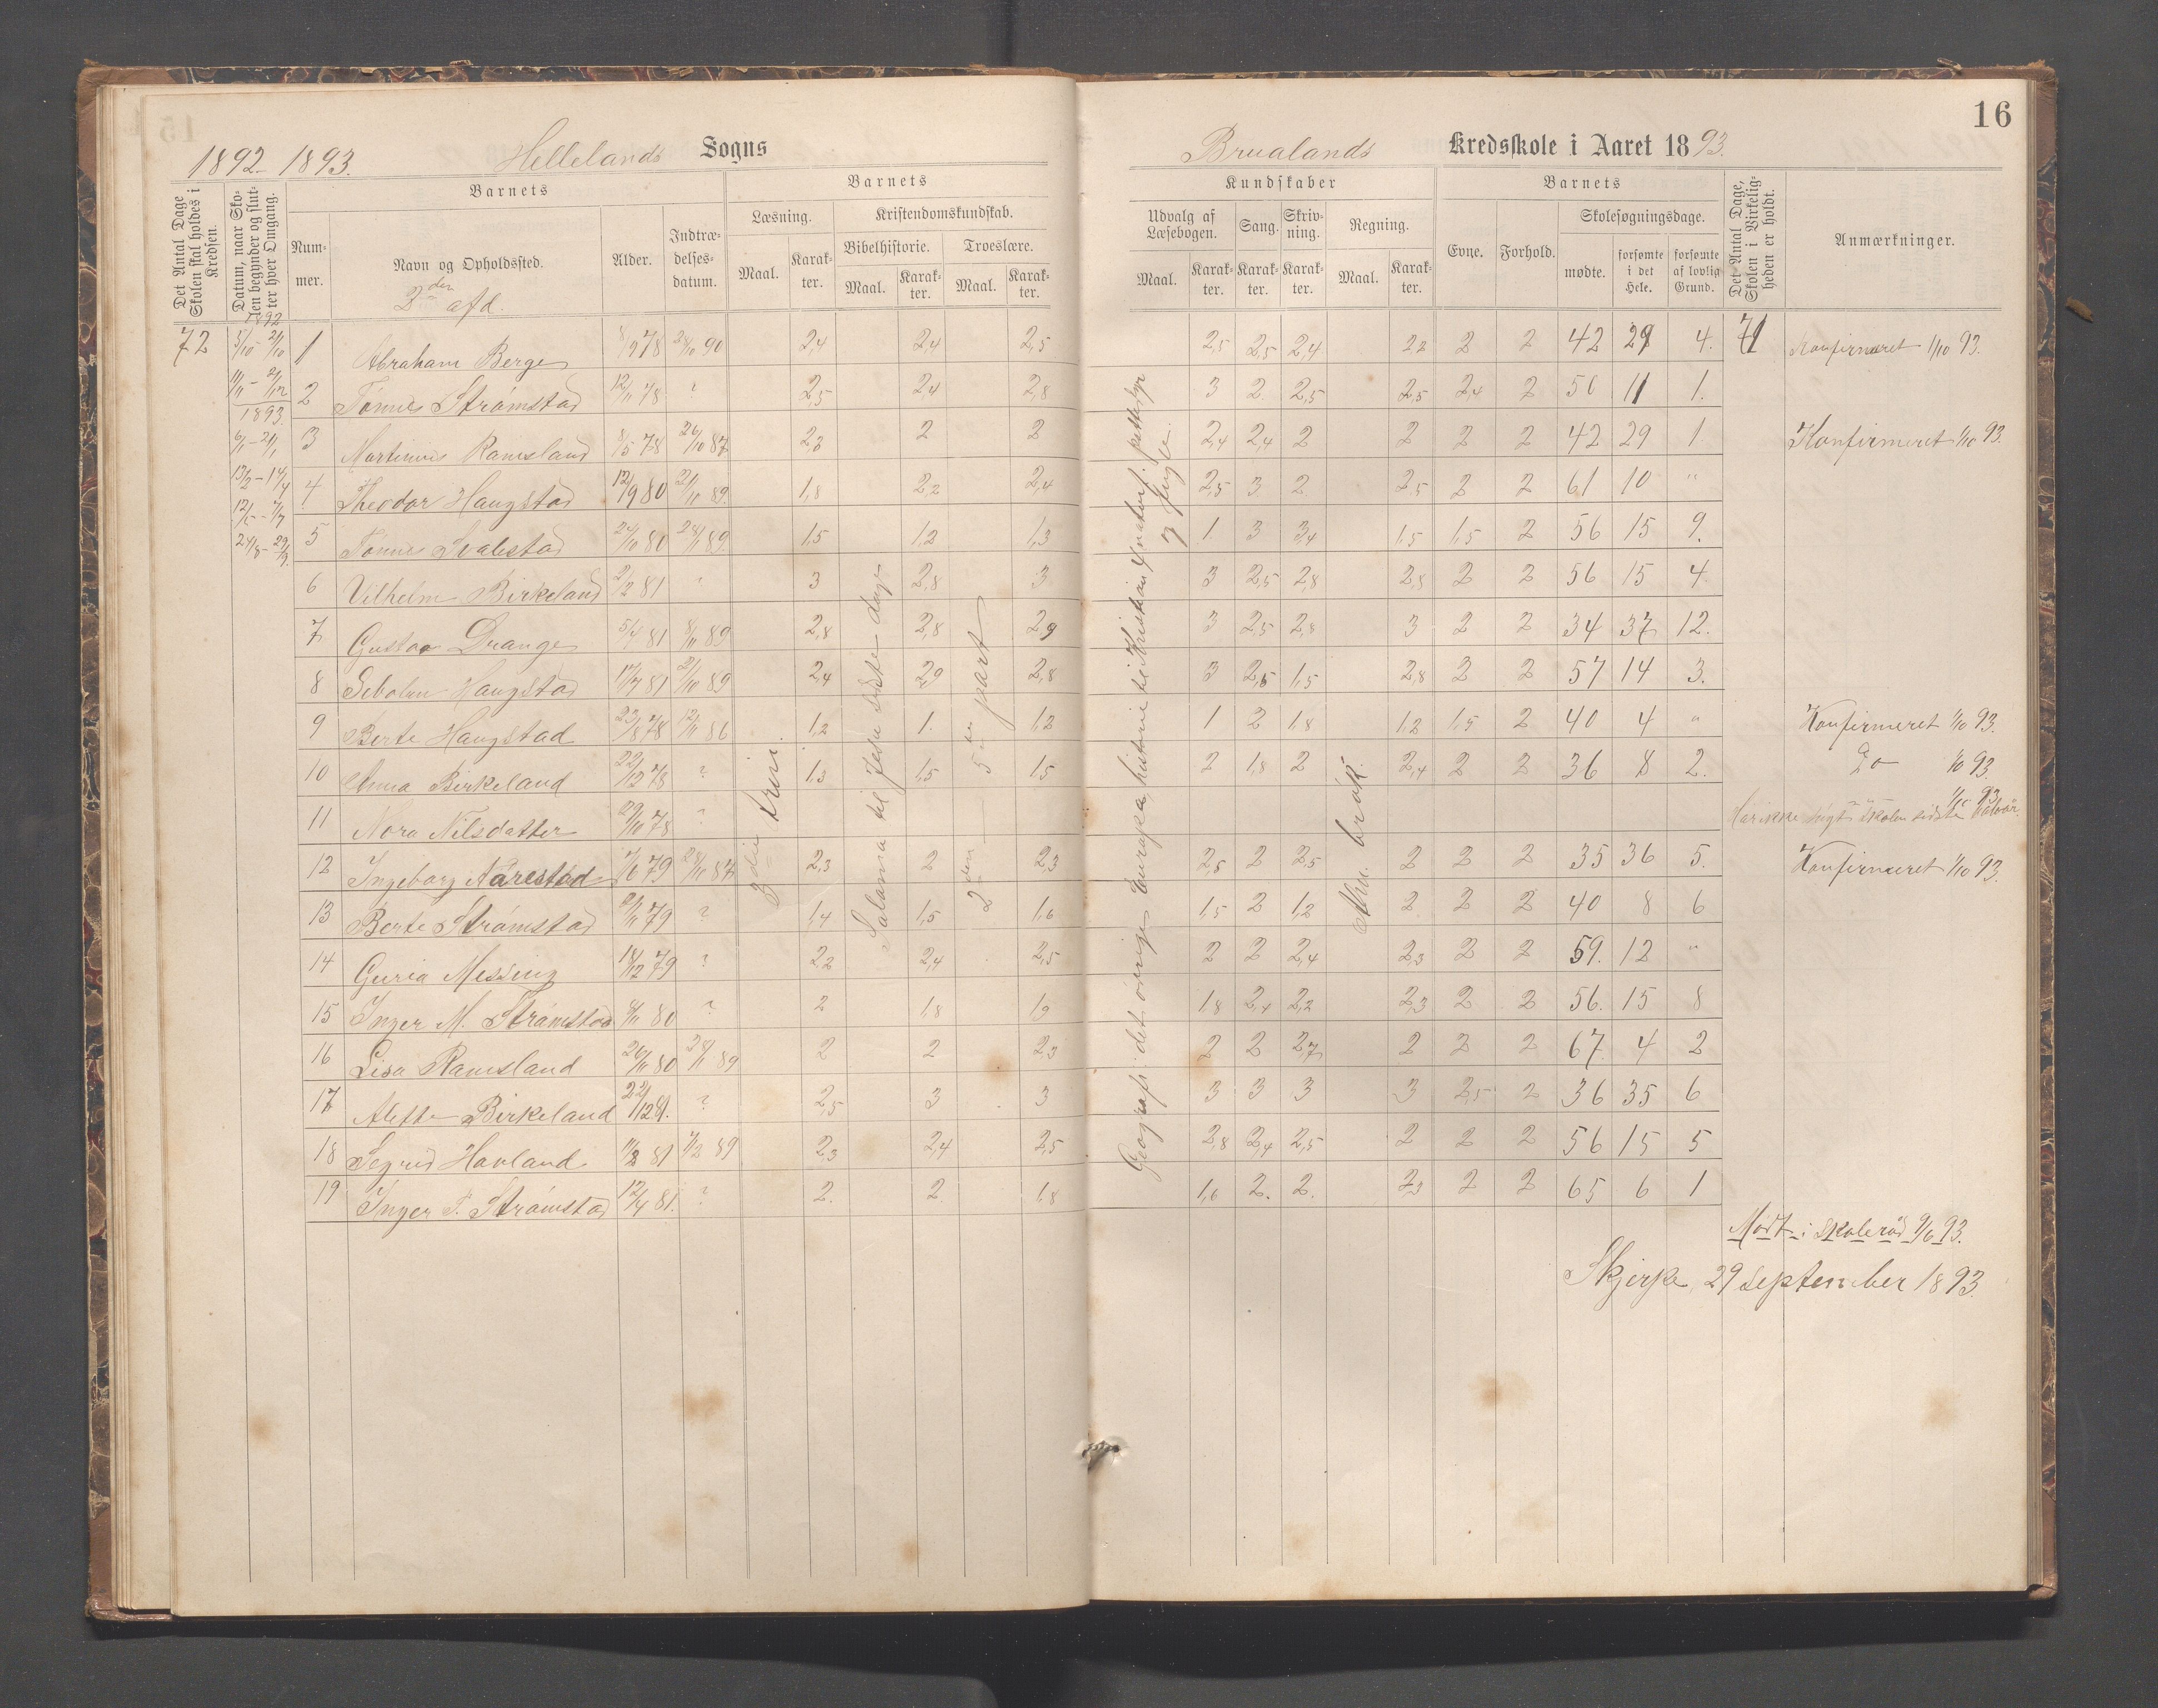 16
1892–1893. Hellelands Sogns
Brualands Kredsskole i Aaret 1893.
Det Antal Dage Skolen skal holdes i Kredsen.
Datum, naar Skolen begynder og slutter hver Omgang.
Barnets
Nummer.
Navn og Opholdssted.
2den afd.
Alder.
Indtrædelsesdatum.
Barnets
Læsning.
Kristendomskundskab.
Bibelhistorie.
Troeslære.
Maal. Karakter. Maal. Karakter. Maal. Karakter.
Kundskaber
Udvalg af Læsebogen.
Sang.
Skrivning.
Regning.
Maal. Karakter. Karakter. Karakter. Maal. Karakter.
Barnets
Evne. Forhold.
Skolesøgningsdage.
mødte. forsømte i det Hele. forsømte af lovlig Grund.
Det Antal Dage, Skolen i Virkeligheden er holdt.
Anmærkninger.
72
1892
5/10 – 21/10
11/11 – 21/12
1893.
6/1 – 21/1
13/2 – 14/4
12/5 – 7/7
24/8 – 29/9
1 Abraham Berge 8/9 78 28/10 90 2,4 2,4 2,5 2,5 2,5 2,4 2,2 2 2 42 29 4. 71 Konfirmeret 1/10 93.
2 Tønnes Strømstad 12/11 78 ? 2,5 2,4 2,8 3 2 2,5 2,5 2,4 2 50 11 1.
3 Martinius Ramsland 8/5 78 26/10 87 2,3 2 2 2,4 2,4 2 2 2 2 42 29 1 Konfirmeret 1/10 93.
4 Theodor Haugstad 12/9 80 21/10 89 1,8 2,2 2,4 2,5 3 2 2,5 2 2 61 10 "
5 Tønnes Svalestad 24/10 80 28/11 89. 1,5 1,2 1,3 1 3 3,4 1,5 1,5 2 56 15 9.
6 Vilhelm Birkeland 2/2 81 3 2,8 3 3 2,5 2,8 2,8 2 2 56 15 4.
7 Gustav Drange 5/4 81 8/11 89 2,8 2,8 2,9 3 2,5 2,8 3 2 2 34 37 12.
8 Haugstad 17/7 81 21/10 89 2,4 2,9 2,8 3 2,5 1,5 2,8 2 2 57 14 3.
9 Berte Haugstad 23/8 78 12/11 86 1,2 1. 1,2 1 2 1,8 1,2 1,5 2 40 4 " Konfirmeret 1/10 93.
10 Anna Birkeland 22/12 78 ? 1,3 1,5 1,5 2 1,8 2 2,4 2 2 36 8 2. Do 1/10 93.
11 Nora Nilsdatter 29/10 78 ? Har ikke søgt skolen sidste halvår. 1/10 93
12 Ingeborg Aarestad 7/6 79 28/11 87 2,3 2 2,3 2,8 2 2,5 2 2 2 35 36 5. Konfirmeret 1/10 93.
13 Berte Strømstad 2/11 79 ? 1,4 1,5 1,6 1,5 2 1,2 2 2 2 40 8 6
14 Guria Messing 18/12 79 ? 2,2 2,4 2,5 2 2 2,4 2,3 2 2 59. 12 "
15 Inger M. Strømstad 9/11 80 ? 2 1,8 1,9 1,8 2,4 2,2 2,3 2 2 56. 15 8
16 Lisa Ramsland 26/11 80 28/11 89 2 2 2,3 2 2 2,7 2 2 2 67 4 2
17 Alette Birkeland 22/12 81. ? 2,5 3 3 3 3 3 3 2,5 2 36 35 6
18 Segrid Havland 11/2 81 7/2 89 2,3 2,4 2,5 2,8 2,4 2,5 2 2 2 56 15 5
19 Inger T. Strømstad 12/4 81. ? 2. 2 1,8 1,6 2. 2. 2,3 2 2 65 6 1
3die trin.
Salama til Jesu sidste dage
2den – 5te part
Geografi: det øvrige Europa, historie til Kristian 4
og fugle.
brøk.
Mødt i skoleråd 9/6 93.
Skjerpe, 29 september 1893.